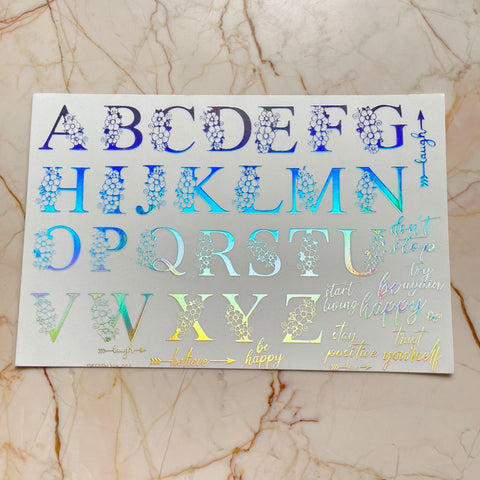 A B C D E F G
laugh
H I J K L M N
O P Q R S T U
don't
stop
try
again
V W X Y Z
start
living
be
happy
laugh
believe
be
happy
stay
positive
trust
yourself